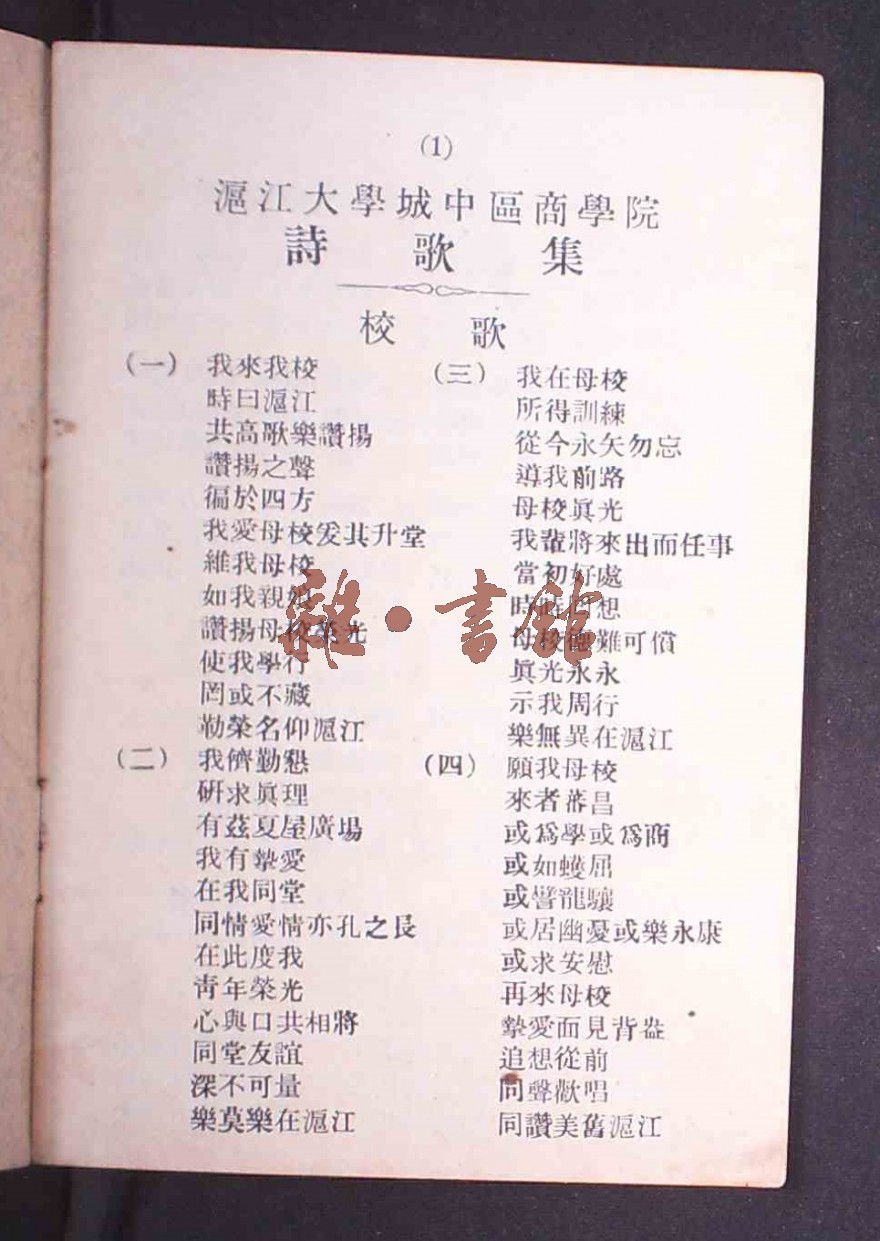 (1)
滬江大學城中區商學院
詩歌集
校歌
(一) 我來我校
時曰滬江
共高歌樂讚揚
讚揚之聲
徧於四方
我愛母校爰其升堂
維我母校
如我親娘
讚揚母校榮光
使我學行
罔或不藏
勒榮名仰滬江
(二) 我儕勤懇
硏求眞理
有茲夏屋廣場
我有摯愛
在我同堂
同情愛情亦孔之長
在此度我
靑年榮光
心與口共相將
同堂友誼
深不可量
樂莫樂在滬江
(三) 我在母校
所得訓練
從今永矢勿忘
導我前路
母校眞光
我輩將來出而任事
當初好處
時時回想
母校德難可償
眞光永永
示我周行
樂無異在滬江
(四) 願我母校
來者蕃昌
或爲學或爲商
或如蠖屈
或譬龍驤
或居幽憂或樂永康
或求安慰
再來母校
摯愛而見背盎
追想從前
同聲歡唱
同讚美舊滬江
雜·書館